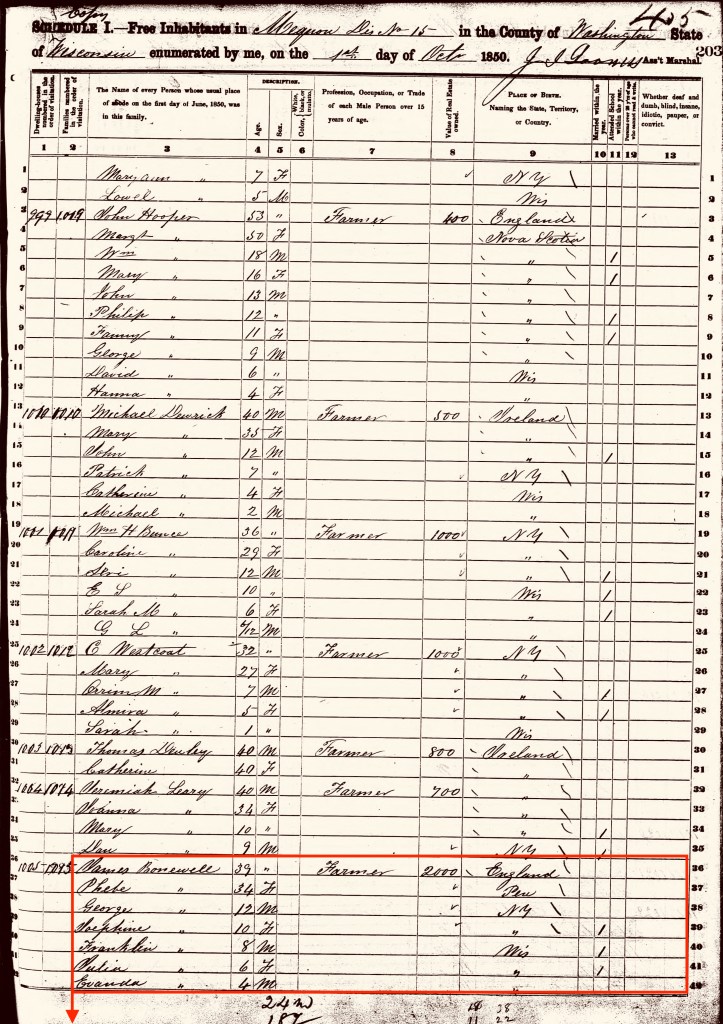 Copy
405
SCHEDULE I.—Free Inhabitants in Mequon Dis No 15 in the County of Washington State
of Wisconsin enumerated by me, on the 1st day of Octr 1850. Ass't Marshal. 203
Dwelling-houses numbered in the order of visitation.
Families numbered in the order of visitation.
The Name of every Person whose usual place of abode on the first day of June, 1850, was in this family.
DESCRIPTION.
Age.
Sex.
Color { White, black, or mulatto.
Profession, Occupation, or Trade of each Male Person over 15 years of age.
Value of Real Estate owned.
PLACE OF BIRTH. Naming the State, Territory, or Country.
Married within the year.
Attended School within the year.
Persons over 20 y'rs of age who cannot read & write.
Whether deaf and dumb, blind, insane, idiotic, pauper, or convict.
1 2 3 4 5 6 7 8 9 10 11 12 13
1 Mary Ann " 7 F NY 1
2 Lowel " 5 M Wis 2
3 999 1009 John Hooper 53 " Farmer 400 England 3
4 Margt " 50 F Nova Scotia 4
5 Wm " 18 M " / 5
6 Mary " 16 F " / 6
7 John " 13 M " 7
8 Philip " 12 " " / 8
9 Fanny " 11 F " / 9
10 George " 9 M " 10
11 David " 6 " Wis 11
12 Hanna " 4 F " 12
13 1000 1010 Michael 40 M Farmer 500 Ireland 13
14 Mary " 35 F " 14
15 John " 12 M " / 15
16 Patrick " 7 " NY 16
17 Catherine " 4 F Wis 17
18 Michael " 2 M " 18
19 1001 1011 Wm H Bunce 36 " Farmer 1000 NY 19
20 Caroline " 29 F " 20
21 Levi " 12 M " / 21
22 E S " 10 " Wis / 22
23 Sarah M " 6 F " / 23
24 G L " 6/12 M " 24
25 1002 1012 E Westcoat 32 " Farmer 1000 NY 25
26 Mary " 27 F " 26
27 Orrin M " 7 M " / 27
28 Almira " 5 F " / 28
29 Sarah " 1 " Wis 29
30 1003 1013 Thomas 40 M Farmer 800 Ireland 30
31 Catherine 40 F " 31
32 1004 1014 Jeremiah Leary 40 M Farmer 700 " 32
33 Joanna " 34 F " 33
34 Mary " 10 " " / 34
35 Dan " 9 M NY / 35
36 1005 1015 James Bonewell 39 " Farmer 2000 England 36
37 Phebe " 34 F Pen 37
38 George " 12 M NY 38
39 Josephine " 10 F " / 39
40 Franklin " 8 M Wis / 40
41 Julia " 6 F " / 41
42 Evanda " 4 M 42
24 m
18 38
11 22